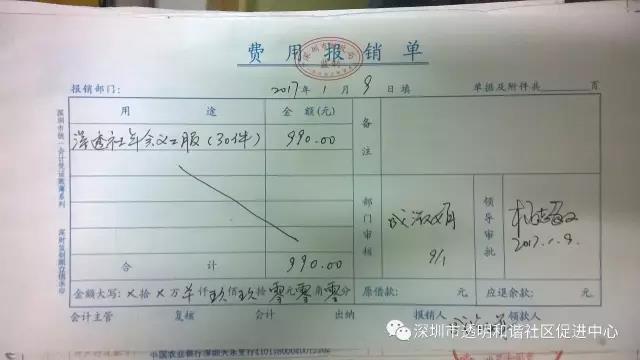 费用报销单
报销部门： 2017年1月9日填 单据及附件共 页
用途 金额(元) 备注
深透社年会义工服(30件) 990.00
部门审核 成淑娟 9/1 领导审批 2017.1.9.
合计 990.00
金额大写：×拾×万 仟玖佰玖拾零元零角零分 原借款： 元 应退余款： 元
会计主管 复核 会计 出纳 报销人 领款人
深圳市统一会计凭证账簿系列
深圳市透明和谐社区促进中心